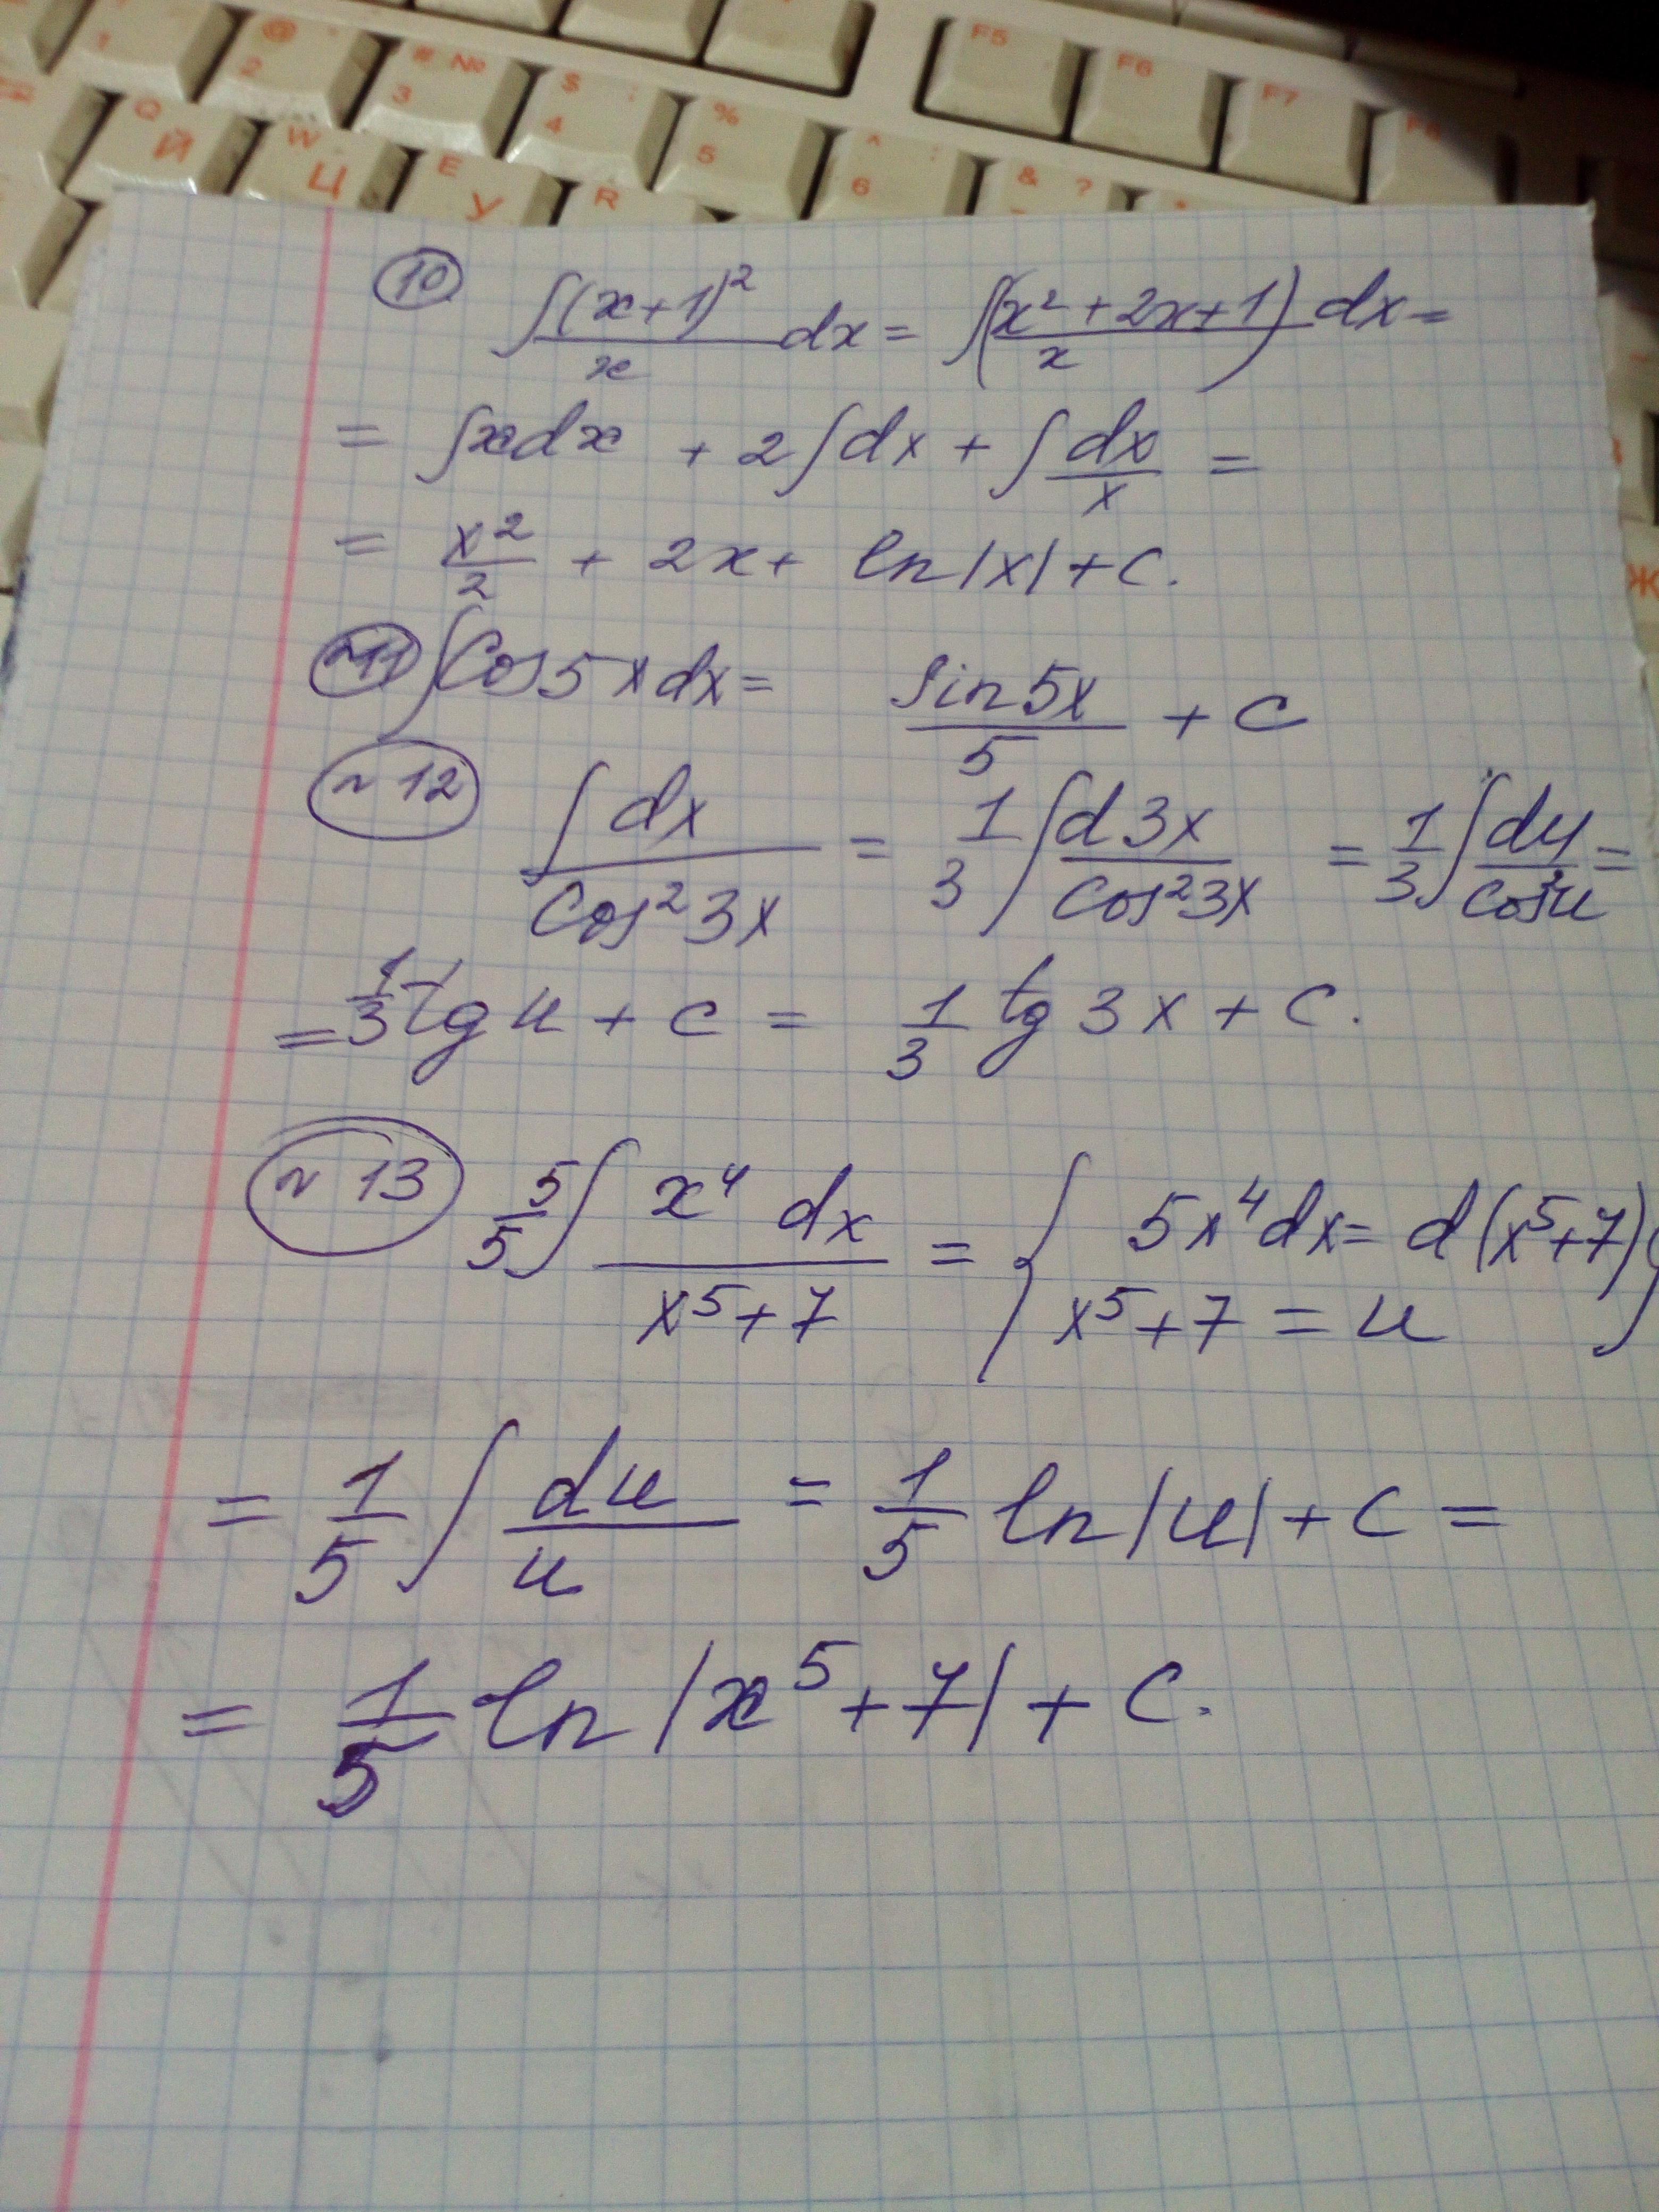 F5 F6 F7
1 @ 2 # № 3 $ ; 4 % 5 ^ : 6 & ?
Q Й W Ц E У R
Ж
10 ∫ (x+1)² / x dx = ∫ (x² + 2x + 1 / x) dx =
= ∫ x dx + 2 ∫ dx + ∫ dx / x =
= x² / 2 + 2x + ln |x| + C.
~11 ∫ Cos 5x dx = sin 5x / 5 + C
~12 ∫ dx / Cos² 3x = 1/3 ∫ d 3x / Cos² 3x = 1/3 ∫ du / Cos² u =
= 1/3 tg u + C = 1/3 tg 3x + C.
~13 5/5 ∫ x⁴ dx / x⁵ + 7 = { 5x⁴ dx = d(x⁵+7)
x⁵ + 7 = u }
= 1/5 ∫ du / u = 1/5 ln |u| + C =
= 1/5 ln |x⁵ + 7| + C.